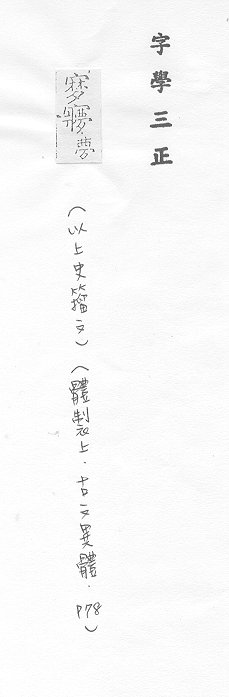 字學三正
夢（以上史籀文）（體製上．古文異體．P78）